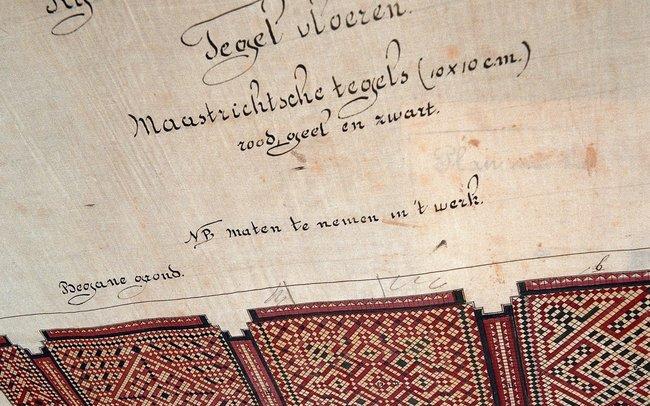 Tegel vloeren.
Maastrichtsche tegels (10x10 c.m.)
rood, geel en zwart.
NB maten te nemen in 't werk.
Begane grond.
b.